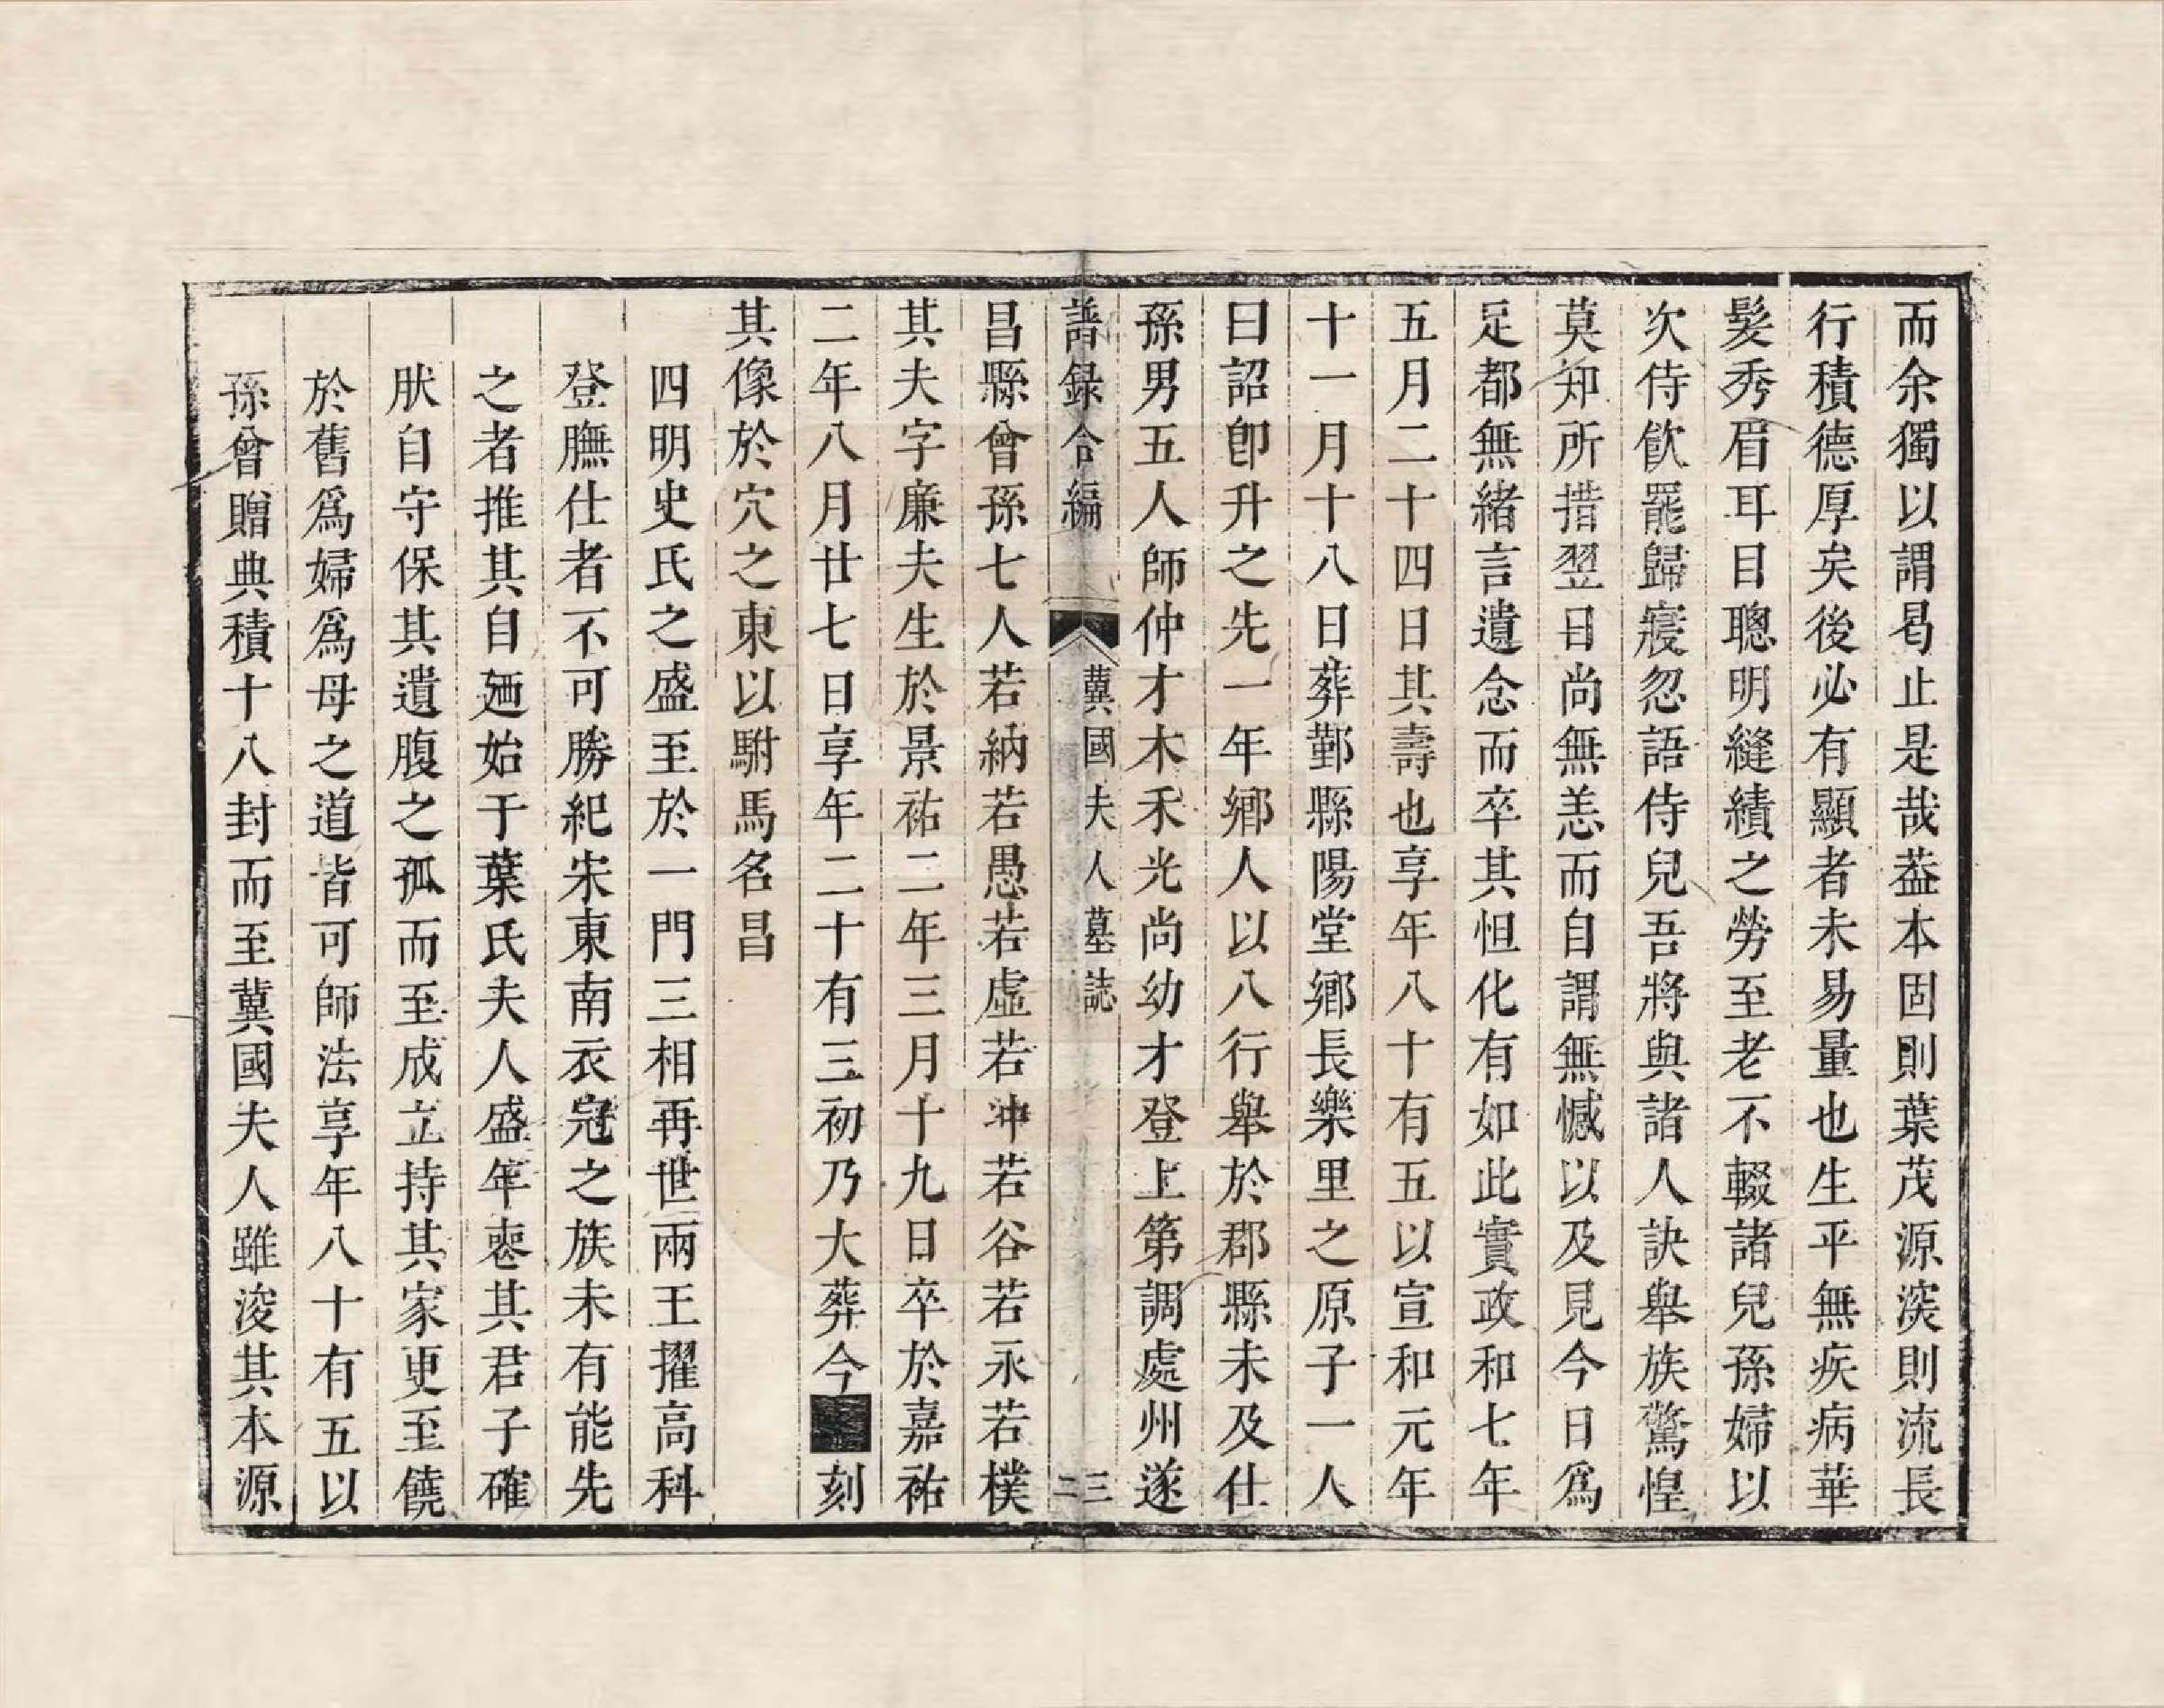 而余獨以謂曷止是哉葢本固則葉茂源深則流長
行積德厚矣後必有顯者未易量也生平無疾病華
髮秀眉耳目聰明縫績之勞至老不輟諸兒孫婦以
次侍飲罷歸寢忽語侍兒吾將與諸人訣舉族驚惶
莫知所措翌日尚無恙而自謂無憾以及見今日爲
足都無緒言遺念而卒其怛化有如此實政和七年
五月二十四日其壽也享年八十有五以宣和元年
十一月十八日葬鄞縣陽堂鄉長樂里之原子一人
曰詔卽升之先一年鄉人以八行舉於郡縣未及仕
孫男五人師仲才木禾光尚幼才登上第調處州遂
譜録合編
冀國夫人墓誌
三
昌縣曾孫七人若納若愚若虛若冲若谷若永若樸
其夫字廉夫生於景祐二年三月十九日卒於嘉祐
二年八月廿七日享年二十有三初乃大葬今刻
其像於穴之東以駙馬名昌
四明史氏之盛至於一門三相再世兩王擢高科
登膴仕者不可勝紀宋東南衣冠之族未有能先
之者推其自廼始于葉氏夫人盛年喪其君子確
肰自守保其遺腹之孤而至成立持其家更至饒
於舊爲婦爲母之道皆可師法享年八十有五以
孫曾贈典積十八封而至冀國夫人雖浚其本源